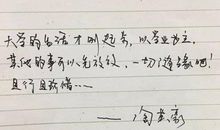 大学的生活才刚起来，以学业为主.
其他的事可以先放放，一切随缘吧!
且行且珍惜……
——